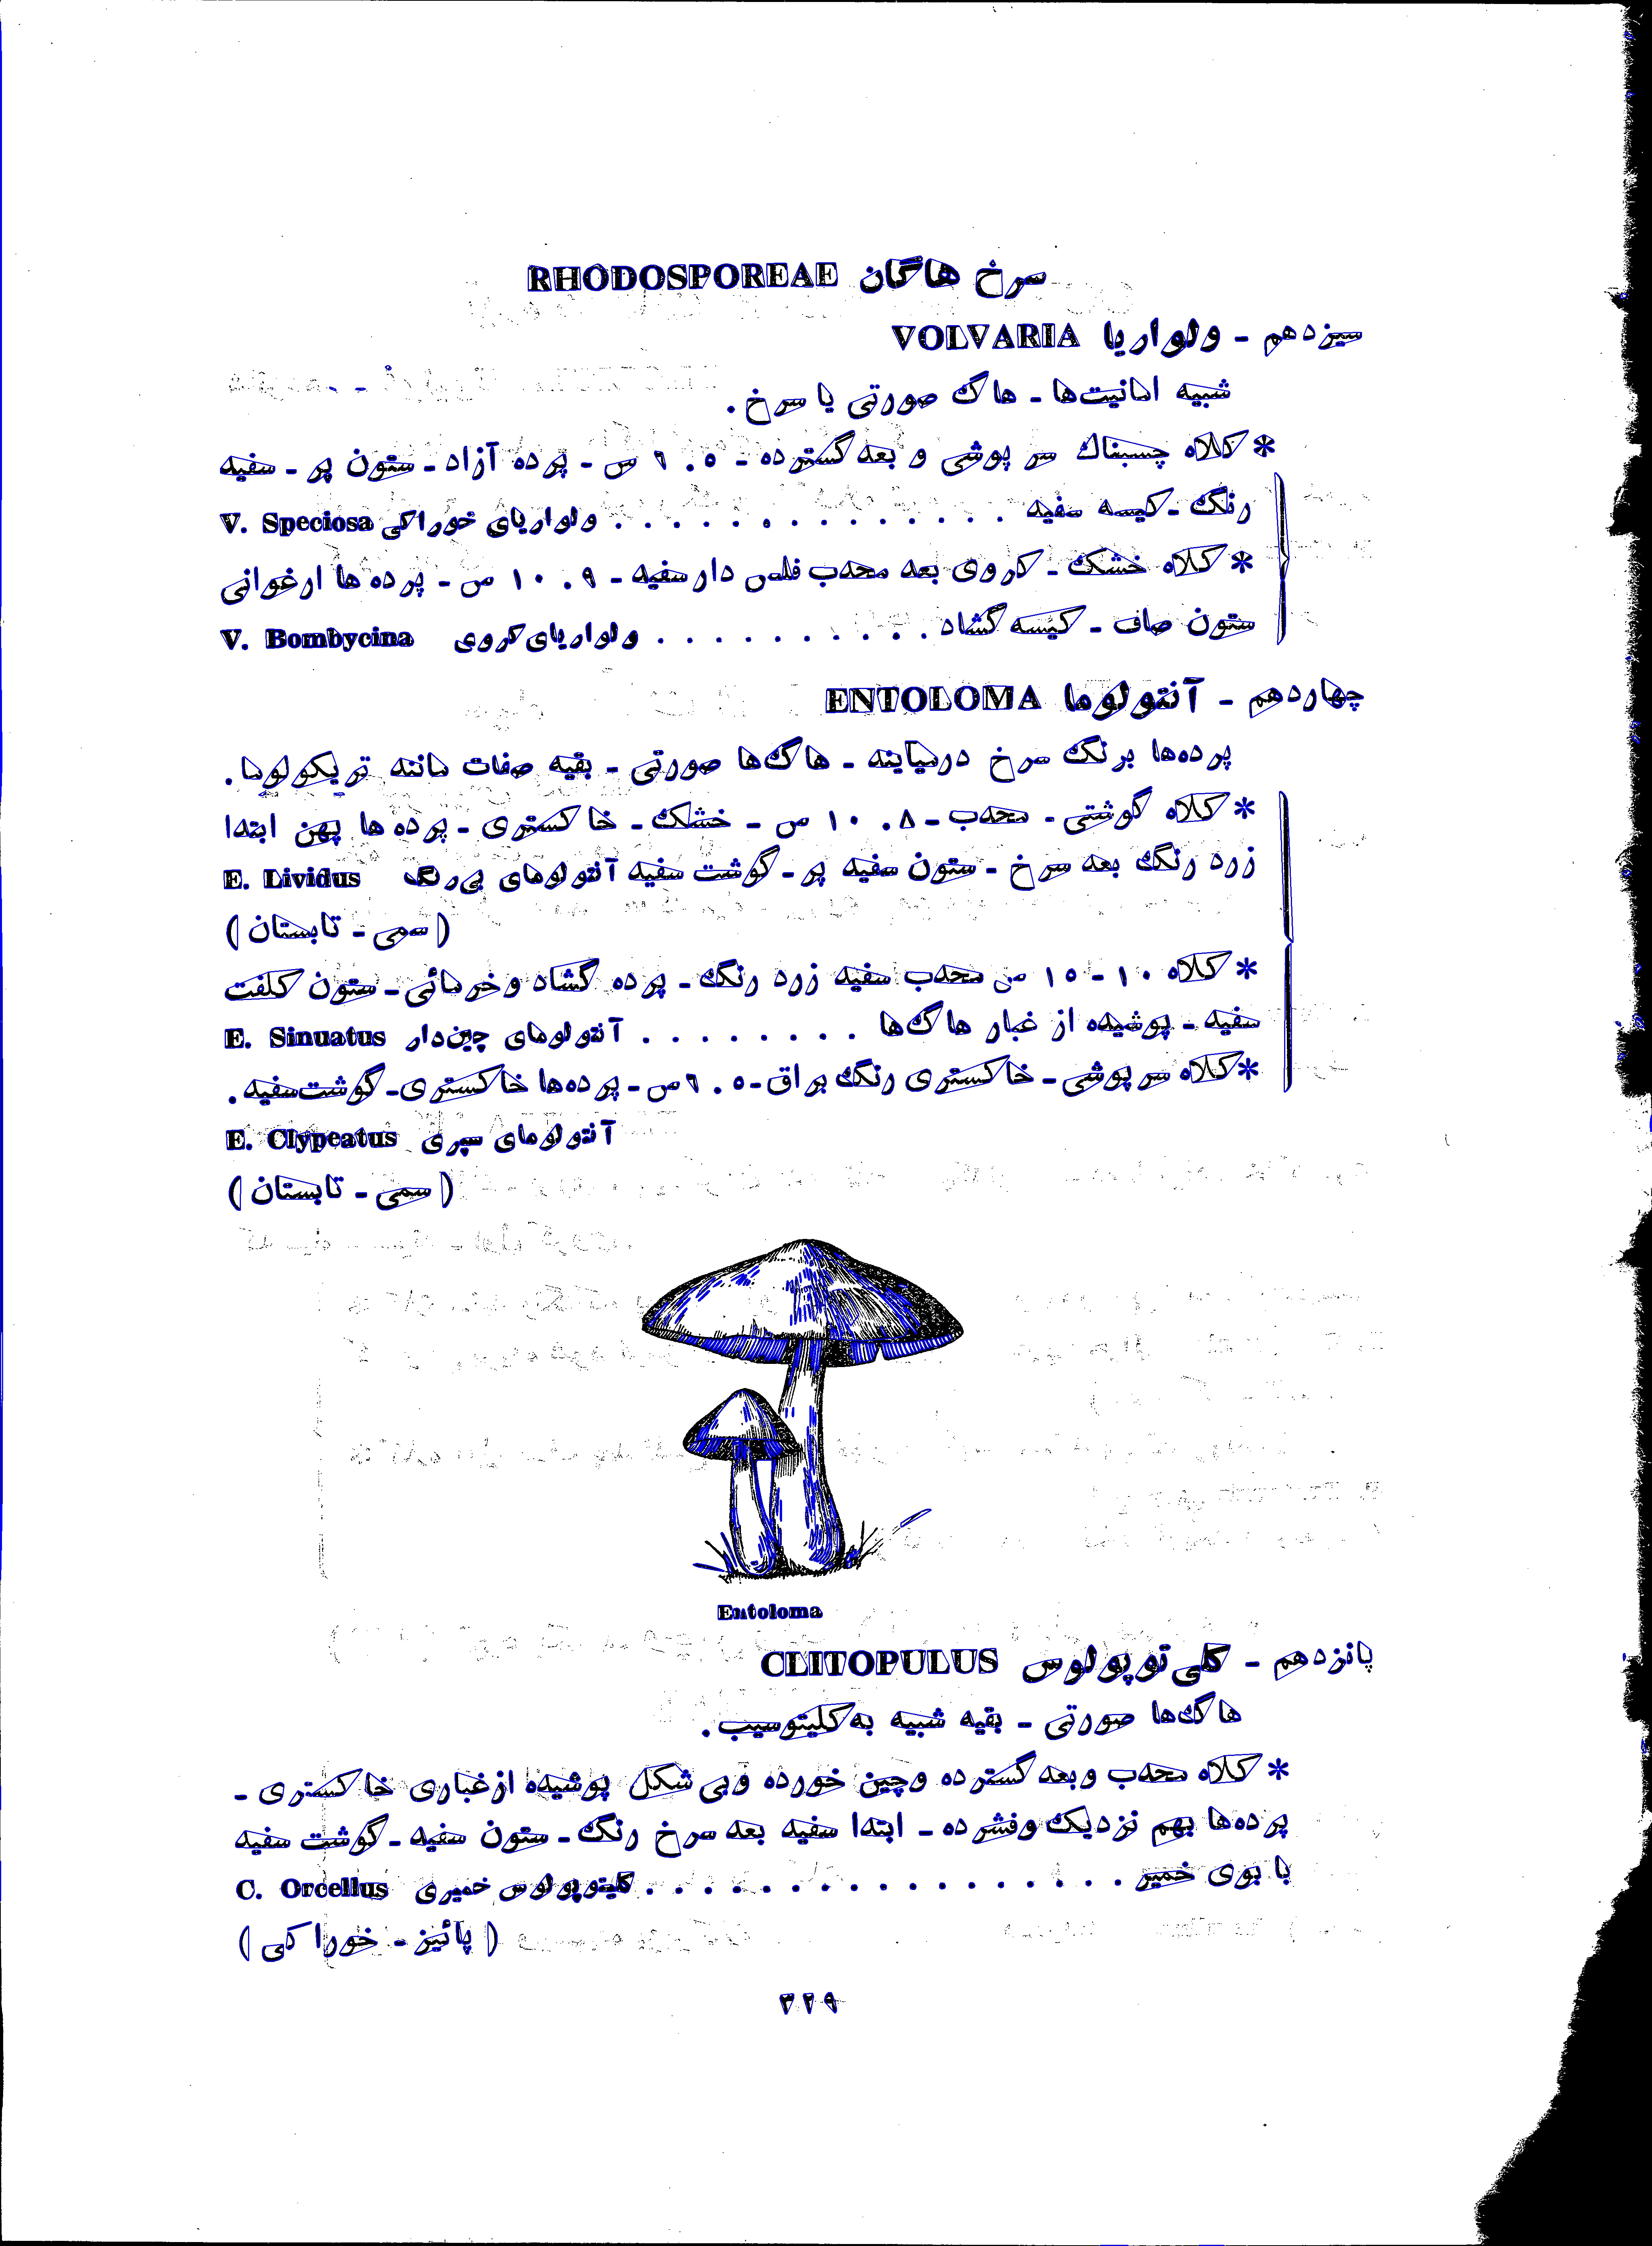 سرخ هاگان RHODOSPOREAE
سیزدهم - ولواریا VOLVARIA
شبیه امانیت‌ها - هاگ صورتی یا سرخ .
* کلاه چسبناک سر پوشی و بعد گسترده - ۵ . ۶ س - پرده آزاد - ستون پر - سفید
رنگ - کیسه سفید . . . . . . . . . . . . . . ولواریای خوراکی V. Speciosa
* کلاه خشک - کروی بعد محدب فلس دار سفید - ۹ . ۱۰ س - پرده ها ارغوانی
ستون صاف - کیسه گشاد . . . . . . . . . . ولواریای کروی V. Bombycina
چهاردهم - آنتولوما ENTOLOMA
پرده‌ها برنگ سرخ درمیایند - هاگ‌ها صورتی - بقیه صفات مانند تریکولوما .
* کلاه گوشتی - محدب - ۸ . ۱۰ س - خشک - خاکستری - پرده ها پهن ابتدا
زرد رنگ بعد سرخ - ستون سفید پر - گوشت سفید آنتولومای بی‌رنگ E. Lividus
( سمی - تابستان )
* کلاه ۱۰ - ۱۵ س محدب سفید زرد رنگ - پرده گشاد و خرمائی - ستون کلفت
سفید - پوشیده از غبار هاگ‌ها . . . . . . . . آنتولومای چین‌دار E. Sinuatus
* کلاه سرپوشی - خاکستری رنگ براق - ۵ . ۶ س - پرده‌ها خاکستری - گوشت سفید .
آنتولومای سپری E. Clypeatus
( سمی - تابستان )
Entoloma
پانزدهم - کلی‌توپولوس CLITOPULUS
هاگ‌ها صورتی - بقیه شبیه به کلیتوسیب .
* کلاه محدب و بعد گسترده و چین خورده و بی شکل پوشیده از غباری خاکستری -
پرده‌ها بهم نزدیک و فشرده - ابتدا سفید بعد سرخ رنگ - ستون سفید - گوشت سفید
با بوی خمیر . . . . . . . . . . . . . . . . . کلیتوپولوس خمیری C. Orcellus
( پائیز - خوراکی )
۳۲۹